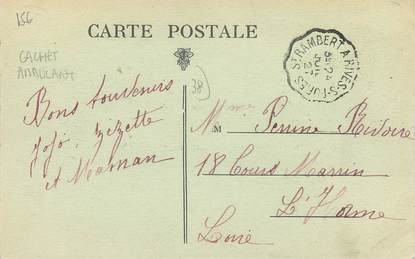 156
CARTE POSTALE
CACHET
AMBULANT
38
ST RAMBERT A RIVES
24
21
Bons Souvenirs
Jojo, Zizette
et Maman
Mme Perrine Rivoire
M
18 Cours Marin
L'Horme
Loire